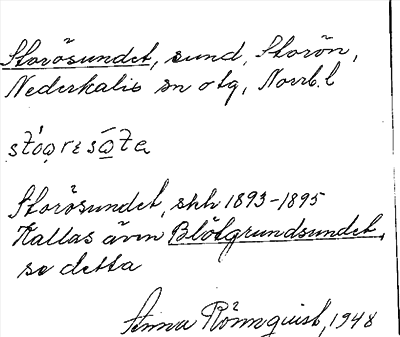 Storösundet, sund, Storön,
Nederkalix sn o tg, Norrb. l
Storösundet, shh 1893-1895
Kallas även Blötgrundsundet,
se detta
Anna Rönnquist, 1948